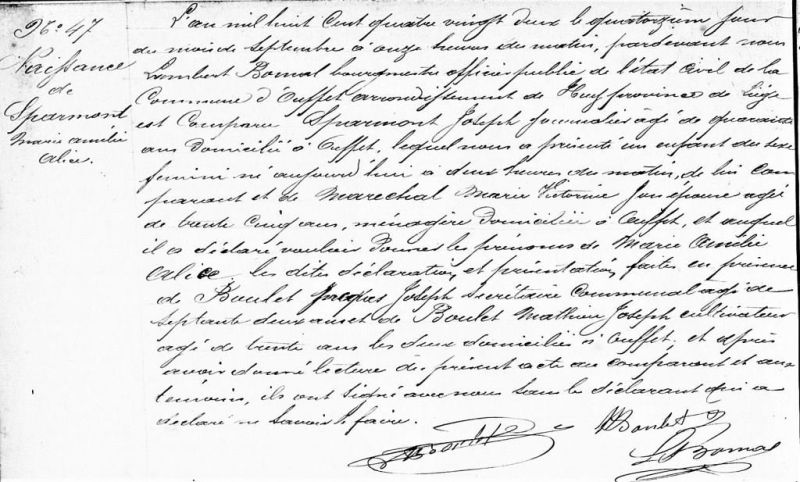 N°. 47
Naissance
de
Sparmont
Marie Amélie
Alice.
L'an mil huit Cent quatre vingt deux le quatorzième jour
du mois de Septembre à onze heures du matin, pardevant nous
Lambert Bomal bourgmestre officier public de l'état Civil de la
Commune d'Ouffet arrondissement de Huy province de Liége
est Comparu Sparmont Joseph Journalier agé de quarante
ans Domicilié à Ouffet, lequel nous a présenté un enfant du sexe
feminin né aujourd'hui à deux heures du matin, de lui com
parant et de Marechal Marie Victorine Son épouse agée
de trente Cinq ans, ménagère Domiciliée à Ouffet, et auquel
il a déclaré vouloir Donner les prénoms de Marie Amélie
Alice. les dites déclaration et présentation faites en présence
de Boulet Jacques Joseph Secrétaire Communal agé de
septante deux ans et de Boulet Mathieu Joseph cultivateur
agé de trente ans les deux domiciliés à Ouffet, et après
avoir donné lecture du présent acte au comparant et aux
témoins, ils ont signé avec nous sauf le déclarant qui a
déclaré ne Savoir le faire.
Boulet
MBoulet
LBomal